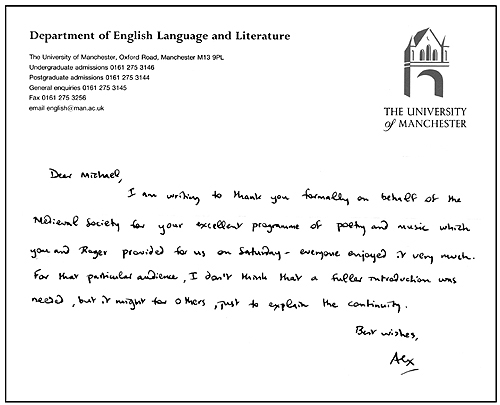 Department of English Language and Literature
The University of Manchester, Oxford Road, Manchester M13 9PL
Undergraduate admissions 0161 275 3146
Postgraduate admissions 0161 275 3144
General enquiries 0161 275 3145
Fax 0161 275 3256
email english@man.ac.uk
THE UNIVERSITY
of MANCHESTER
Dear Michael,
I am writing to thank you formally on behalf of the
Medieval Society for your excellent programme of poetry and music which
you and Roger provided for us on Saturday - everyone enjoyed it very much.
For that particular audience, I don't think that a fuller introduction was
needed, but it might for others, just to explain the continuity.
Best wishes,
Alex